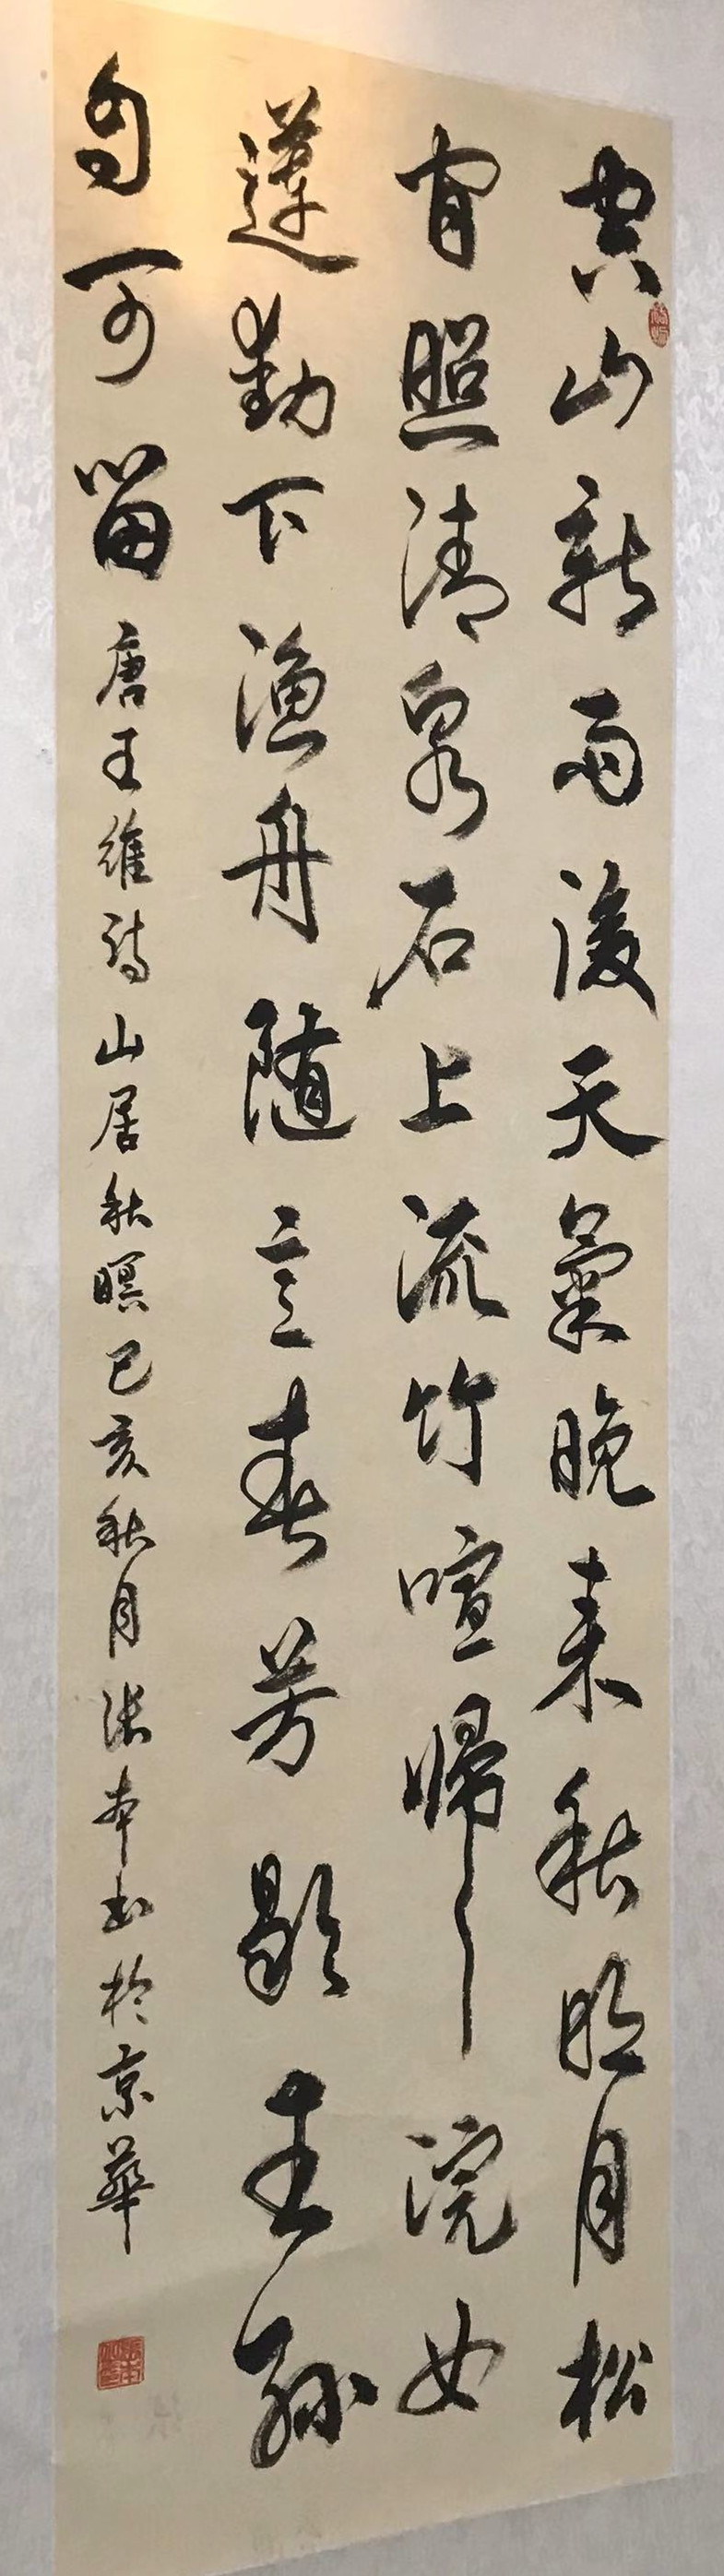 空山新雨後天氣晚来秋明月松
间照清泉石上流竹喧歸浣女
蓮動下漁舟随意春芳歇王孫
自可留 唐王維詩山居秋暝己亥秋月张本书於京華